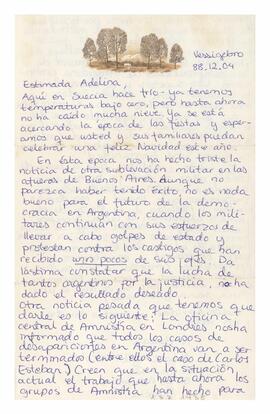 Vessigebro
88.12.04
Estimada Adelina,
Aquí en Suecia hace frío - ya tenemos
temperaturas bajo cero, pero hasta ahora
no ha caído mucha nieve. Ya se está
acercando la época de las fiestas y esper-
amos que usted y sus familiares puedan
celebrar una feliz Navidad este año.
En ésta época nos ha hecho triste la
noticia de otra sublevación militar en las
afueras de Buenos Aires. Aunque no
parezca haber tenido éxito no es nada
bueno para el futuro de la demo-
cracia en Argentina, cuando los mili-
tares continúan con sus esfuerzos de
llevar a cabo golpes de estado y
protestan contra los castigos que han
recibido unos pocos de sus jefes. Da
lástima constatar que la lucha de
tantos argentinos por la justicia, no ha
dado el resultado deseado.
Otra noticia pesada que tenemos que
darle es lo siguiente: La oficina
central de Amnistía en Londres nos ha
informado que todos los casos de
desapariciones en Argentina van a ser
terminados (entre ellos el caso de Carlos
Esteban.) Creen que en la situación
actual el trabajo que hasta ahora los
grupos de Amnistía han hecho para